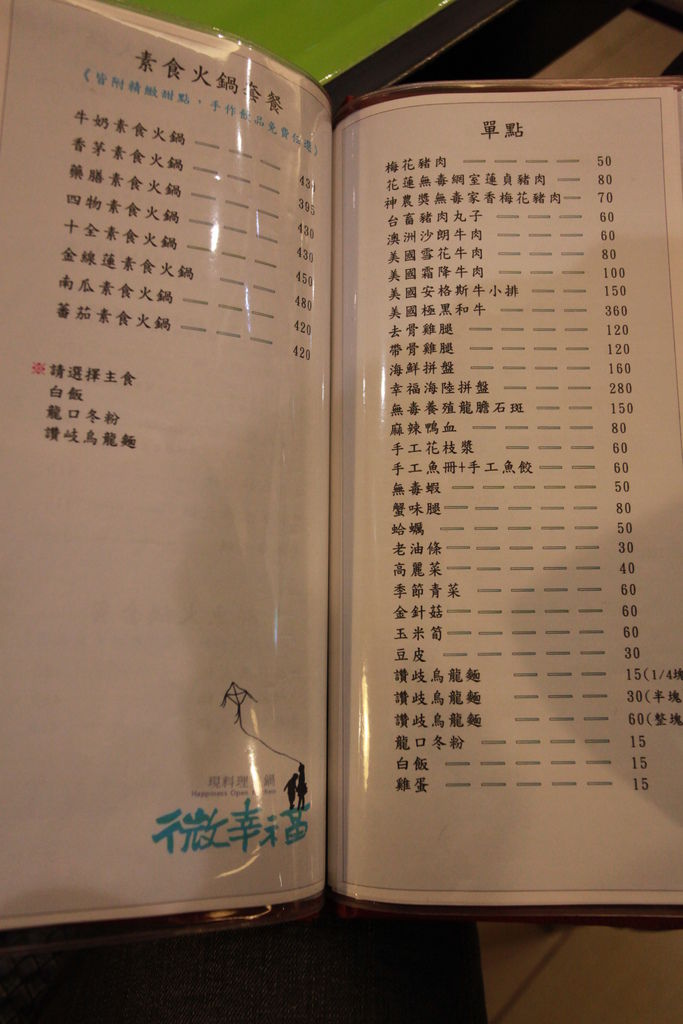 素食火鍋套餐
《皆附精緻甜點，手作飲品免費任選》
牛奶素食火鍋 — — — 430
香茅素食火鍋 — — — 395
藥膳素食火鍋 — — — 430
四物素食火鍋 — — — 430
十全素食火鍋 — — — 450
金線蓮素食火鍋 — — 480
南瓜素食火鍋 — — — 420
蕃茄素食火鍋 — — — 420
※請選擇主食
白飯
龍口冬粉
讚岐烏龍麵
現料理 鍋
Happiness Open
微幸福
單點
梅花豬肉 — — — — 50
花蓮無毒網室蓮貞豬肉 — 80
神農獎無毒家香梅花豬肉— 70
台畜豬肉丸子 — — — 60
澳洲沙朗牛肉 — — — 60
美國雪花牛肉 — — — 80
美國霜降牛肉 — — — 100
美國安格斯牛小排 — — 150
美國極黑和牛 — — — 360
去骨雞腿 — — — — 120
帶骨雞腿 — — — — 120
海鮮拼盤 — — — — 160
幸福海陸拼盤 — — — 280
無毒養殖龍膽石斑 — — 150
麻辣鴨血 — — — — 80
手工花枝漿 — — — 60
手工魚冊+手工魚餃 — — 60
無毒蝦 — — — — — 50
蟹味腿— — — — — 80
蛤蠣 — — — — — 50
老油條— — — — — 30
高麗菜— — — — — 40
季節青菜 — — — — 60
金針菇— — — — — 60
玉米筍— — — — — 60
豆皮 — — — — — 30
讚岐烏龍麵 — — — — 15(1/4塊
讚岐烏龍麵 — — — — 30(半塊
讚岐烏龍麵 — — — — 60(整塊
龍口冬粉 — — — — 15
白飯 — — — — — 15
雞蛋 — — — — — 15